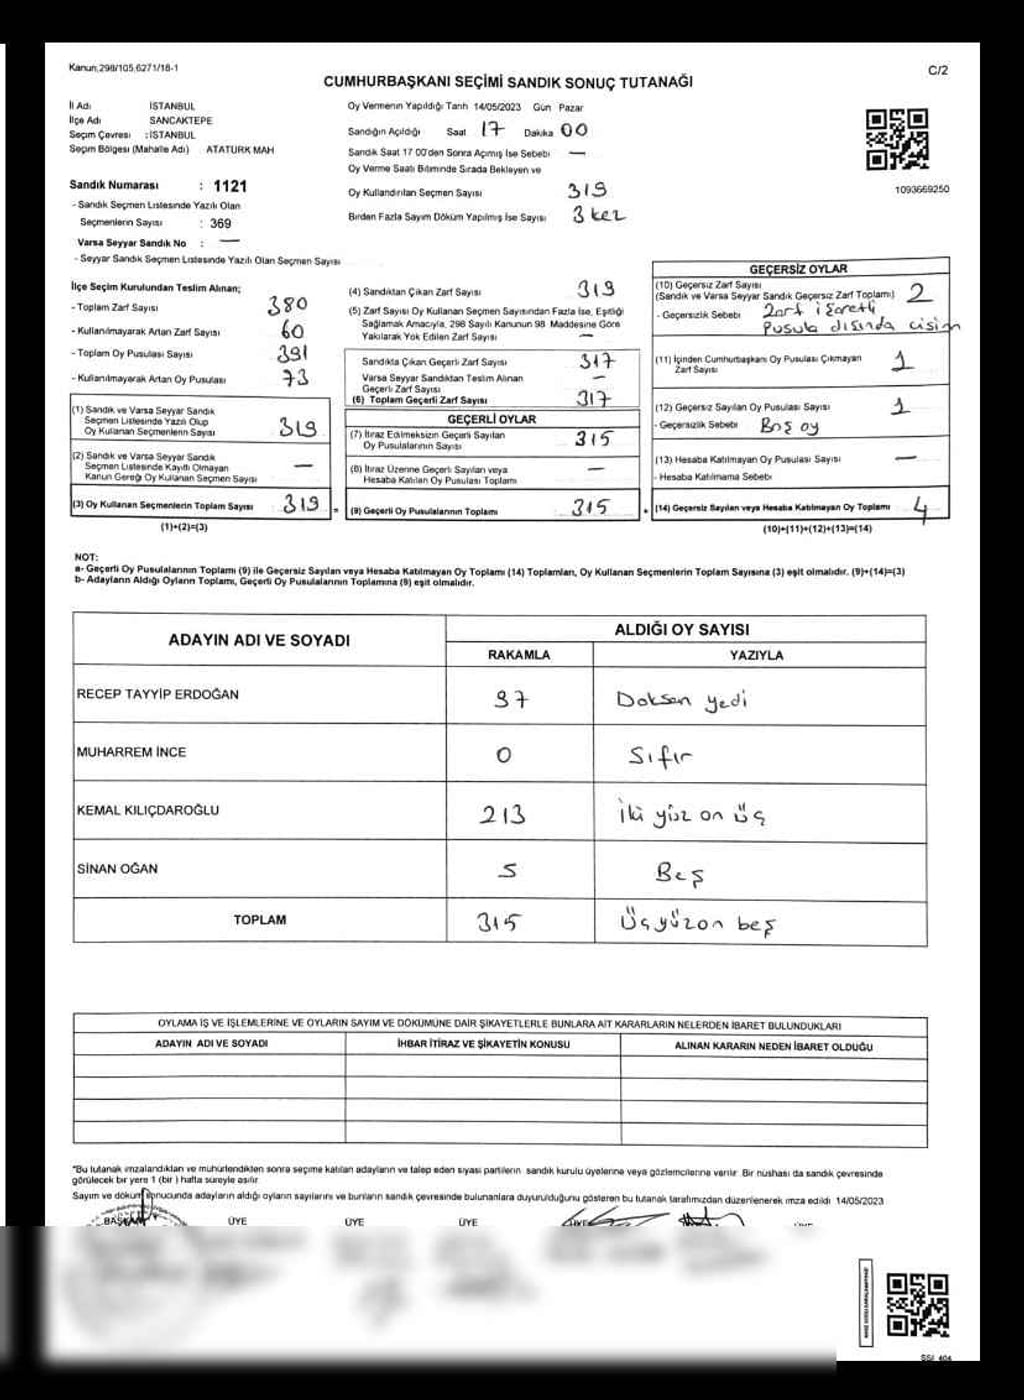 Kanun;298/105,6271/18-1
C/2
CUMHURBAŞKANI SEÇİMİ SANDIK SONUÇ TUTANAĞI
İl Adı İSTANBUL
İlçe Adı SANCAKTEPE
Seçim Çevresi :İSTANBUL
Seçim Bölgesi (Mahalle Adı) ATATÜRK MAH
Sandık Numarası : 1121
- Sandık Seçmen Listesinde Yazılı Olan
Seçmenlerin Sayısı : 369
Varsa Seyyar Sandık No : —
- Seyyar Sandık Seçmen Listesinde Yazılı Olan Seçmen Sayısı
Oy Vermenin Yapıldığı Tarih 14/05/2023 Gün Pazar
Sandığın Açıldığı Saat 17 Dakika 00
Sandık Saat 17 00'den Sonra Açımış İse Sebebi —
Oy Verme Saati Bitiminde Sırada Bekleyen ve
Oy Kullandırılan Seçmen Sayısı 319
Birden Fazla Sayım Döküm Yapılmış İse Sayısı 3 kez
1093669250
İlçe Seçim Kurulundan Teslim Alınan;
- Toplam Zarf Sayısı 380
- Kullanılmayarak Artan Zarf Sayısı 60
- Toplam Oy Pusulası Sayısı 391
- Kullanılmayarak Artan Oy Pusulası 73
(1) Sandık ve Varsa Seyyar Sandık
Seçmen Listesinde Yazılı Olup
Oy Kullanan Seçmenlerin Sayısı 319
(2) Sandık ve Varsa Seyyar Sandık
Seçmen Listesinde Kayıtlı Olmayan
Kanun Gereği Oy Kullanan Seçmen Sayısı —
(3) Oy Kullanan Seçmenlerin Toplam Sayısı 319
(1)+(2)=(3)
(4) Sandıktan Çıkan Zarf Sayısı 319
(5) Zarf Sayısı Oy Kullanan Seçmen Sayısından Fazla İse, Eşitliği
Sağlamak Amacıyla, 298 Sayılı Kanunun 98 Maddesine Göre
Yakılarak Yok Edilen Zarf Sayısı —
Sandıkta Çıkan Geçerli Zarf Sayısı 317
Varsa Seyyar Sandıktan Teslim Alınan
Geçerli Zarf Sayısı —
(6) Toplam Geçerli Zarf Sayısı 317
GEÇERLİ OYLAR
(7) İtiraz Edilmeksizin Geçerli Sayılan
Oy Pusulalarının Sayısı 315
(8) İtiraz Üzerine Geçerli Sayılan veya
Hesaba Katılan Oy Pusulası Toplamı —
(9) Geçerli Oy Pusulalarının Toplamı 315
GEÇERSİZ OYLAR
(10) Geçersiz Zarf Sayısı
(Sandık ve Varsa Seyyar Sandık Geçersiz Zarf Toplamı) 2
- Geçersizlik Sebebi Zarf işaretli
Pusula dışında cisim
(11) İçinden Cumhurbaşkanı Oy Pusulası Çıkmayan
Zarf Sayısı 1
(12) Geçersiz Sayılan Oy Pusulası Sayısı 1
- Geçersizlik Sebebi Boş oy
(13) Hesaba Katılmayan Oy Pusulası Sayısı —
- Hesaba Katılmama Sebebi
(14) Geçersiz Sayılan veya Hesaba Katılmayan Oy Toplamı 4
(10)+(11)+(12)+(13)=(14)
NOT:
a- Geçerli Oy Pusulalarının Toplamı (9) ile Geçersiz Sayılan veya Hesaba Katılmayan Oy Toplamı (14) Toplamları, Oy Kullanan Seçmenlerin Toplam Sayısına (3) eşit olmalıdır. (9)+(14)=(3)
b- Adayların Aldığı Oyların Toplamı, Geçerli Oy Pusulalarının Toplamına (9) eşit olmalıdır.
ADAYIN ADI VE SOYADI
ALDIĞI OY SAYISI
RAKAMLA YAZIYLA
RECEP TAYYİP ERDOĞAN 97 Doksan yedi
MUHARREM İNCE 0 Sıfır
KEMAL KILIÇDAROĞLU 213 İki yüz on üç
SİNAN OĞAN 5 Beş
TOPLAM 315 Üçyüzon beş
OYLAMA İŞ VE İŞLEMLERİNE VE OYLARIN SAYIM VE DÖKÜMÜNE DAİR ŞİKAYETLERLE BUNLARA AİT KARARLARIN NELERDEN İBARET BULUNDUKLARI
ADAYIN ADI VE SOYADI İHBAR İTİRAZ VE ŞİKAYETİN KONUSU ALINAN KARARIN NEDEN İBARET OLDUĞU
*Bu tutanak imzalandıktan ve mühürlendikten sonra seçime katılan adayların ve talep eden siyasi partilerin sandık kurulu üyelerine veya gözlemcilerine verilir. Bir nüshası da sandık çevresinde
görülecek bir yere 1 (bir ) hafta süreyle asılır
Sayım ve döküm sonucunda adayların aldığı oyların sayılarını ve bunların sandık çevresinde bulunanlara duyurulduğunu gösteren bu tutanak tarafımızdan düzenlenerek imza edildi 14/05/2023
BAŞKAN ÜYE ÜYE ÜYE ÜYE